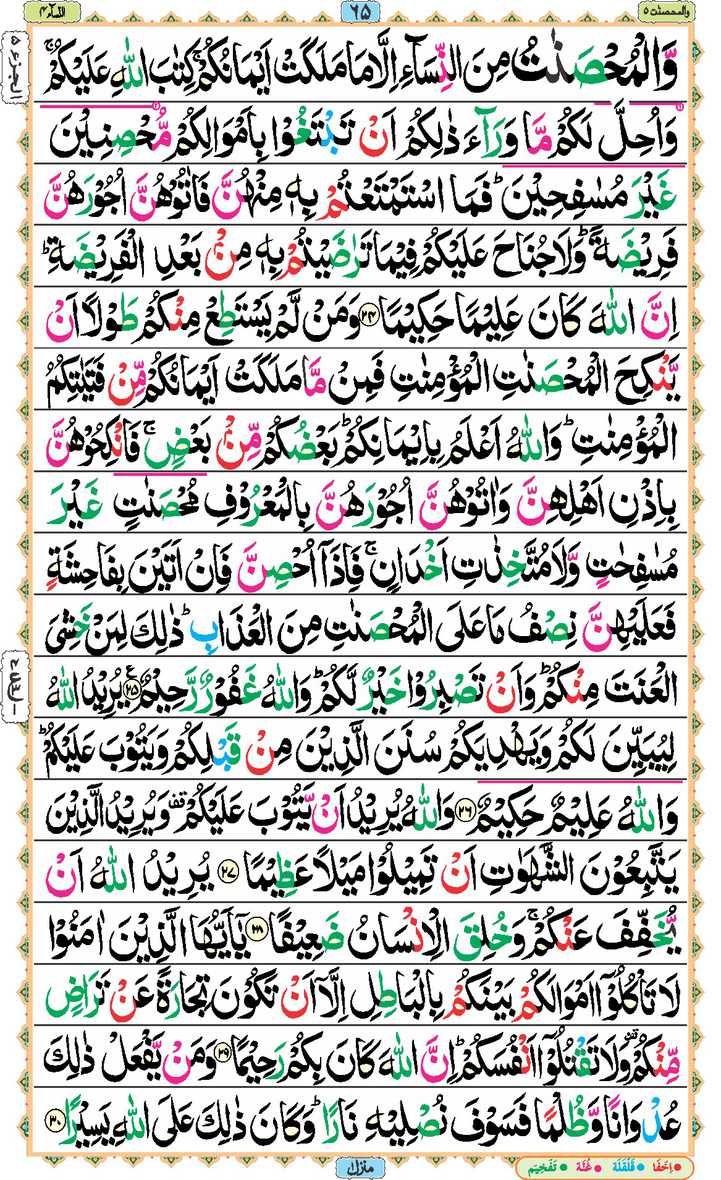 والمحصنت ٥
٦٥
النسآء ٤
وَّالْمُحْصَنٰتُ مِنَ النِّسَآءِ اِلَّا مَا مَلَكَتْ اَيْمَانُكُمْ ۚ كِتٰبَ اللّٰهِ عَلَيْكُمْ ۚ
وَاُحِلَّ لَكُمْ مَّا وَرَآءَ ذٰلِكُمْ اَنْ تَبْتَغُوْا بِاَمْوَالِكُمْ مُّحْصِنِيْنَ
غَيْرَ مُسٰفِحِيْنَ ؕ فَمَا اسْتَمْتَعْتُمْ بِهٖ مِنْهُنَّ فَاٰتُوْهُنَّ اُجُوْرَهُنَّ
فَرِيْضَةً ؕ وَلَا جُنَاحَ عَلَيْكُمْ فِيْمَا تَرٰضَيْتُمْ بِهٖ مِنْۢ بَعْدِ الْفَرِيْضَةِ ؕ
اِنَّ اللّٰهَ كَانَ عَلِيْمًا حَكِيْمًا ﴿۲۴﴾ وَمَنْ لَّمْ يَسْتَطِعْ مِنْكُمْ طَوْلًا اَنْ
يَّنْكِحَ الْمُحْصَنٰتِ الْمُؤْمِنٰتِ فَمِنْ مَّا مَلَكَتْ اَيْمَانُكُمْ مِّنْ فَتَيٰتِكُمُ
الْمُؤْمِنٰتِ ؕ وَاللّٰهُ اَعْلَمُ بِاِيْمَانِكُمْ ؕ بَعْضُكُمْ مِّنْۢ بَعْضٍ ۚ فَانْكِحُوْهُنَّ
بِاِذْنِ اَهْلِهِنَّ وَاٰتُوْهُنَّ اُجُوْرَهُنَّ بِالْمَعْرُوْفِ مُحْصَنٰتٍ غَيْرَ
مُسٰفِحٰتٍ وَّلَا مُتَّخِذٰتِ اَخْدَانٍ ۚ فَاِذَاۤ اُحْصِنَّ فَاِنْ اَتَيْنَ بِفَاحِشَةٍ
فَعَلَيْهِنَّ نِصْفُ مَا عَلَى الْمُحْصَنٰتِ مِنَ الْعَذَابِ ؕ ذٰلِكَ لِمَنْ خَشِىَ
الْعَنَتَ مِنْكُمْ ؕ وَاَنْ تَصْبِرُوْا خَيْرٌ لَّكُمْ ؕ وَاللّٰهُ غَفُوْرٌ رَّحِيْمٌ ﴿۲۵﴾ يُرِيْدُ اللّٰهُ
لِيُبَيِّنَ لَكُمْ وَيَهْدِيَكُمْ سُنَنَ الَّذِيْنَ مِنْ قَبْلِكُمْ وَيَتُوْبَ عَلَيْكُمْ ؕ
وَاللّٰهُ عَلِيْمٌ حَكِيْمٌ ﴿۲۶﴾ وَاللّٰهُ يُرِيْدُ اَنْ يَّتُوْبَ عَلَيْكُمْ وَيُرِيْدُ الَّذِيْنَ
يَتَّبِعُوْنَ الشَّهَوٰتِ اَنْ تَمِيْلُوْا مَيْلًا عَظِيْمًا ﴿۲۷﴾ يُرِيْدُ اللّٰهُ اَنْ
يُّخَفِّفَ عَنْكُمْ ۚ وَخُلِقَ الْاِنْسَانُ ضَعِيْفًا ﴿۲۸﴾ يٰۤاَيُّهَا الَّذِيْنَ اٰمَنُوْا
لَا تَاْكُلُوْۤا اَمْوَالَكُمْ بَيْنَكُمْ بِالْبَاطِلِ اِلَّاۤ اَنْ تَكُوْنَ تِجَارَةً عَنْ تَرَاضٍ
مِّنْكُمْ وَلَا تَقْتُلُوْۤا اَنْفُسَكُمْ ؕ اِنَّ اللّٰهَ كَانَ بِكُمْ رَحِيْمًا ﴿۲۹﴾ وَمَنْ يَّفْعَلْ ذٰلِكَ
عُدْوَانًا وَّظُلْمًا فَسَوْفَ نُصْلِيْهِ نَارًا ؕ وَكَانَ ذٰلِكَ عَلَى اللّٰهِ يَسِيْرًا ﴿۳۰﴾
منزل
اِخْفَا قَلْقَلَة غُنَّه تَفْخِيْم
الجزء ٥